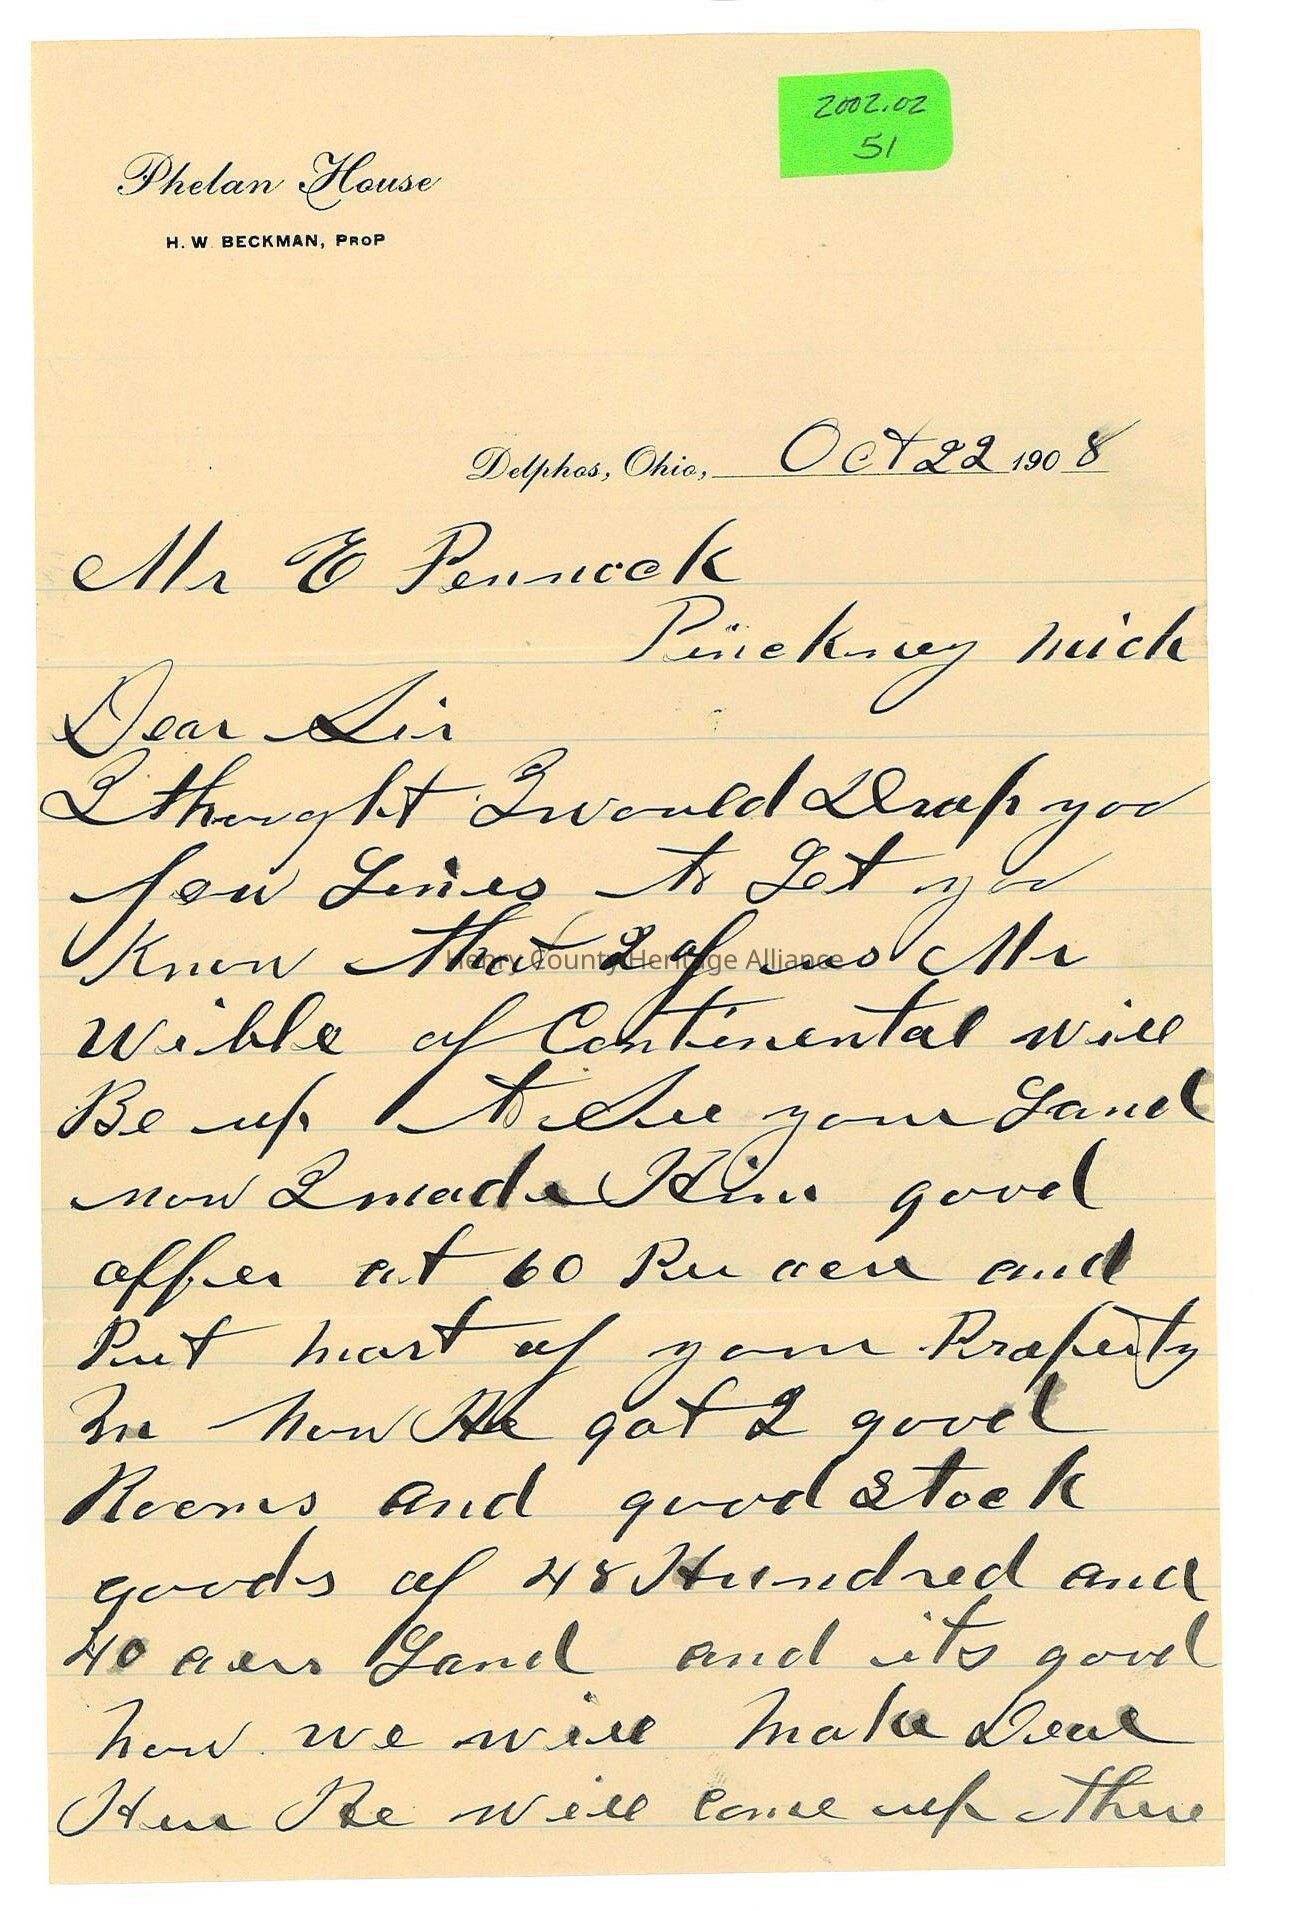 2002.02
51
Phelan House
H. W. BECKMAN, PROP
Delphos, Ohio, Oct 22 1908
Mr E Pennock
Pinckney Mich
Dear Sir
I thought I would Drop you
few Lines to Let you
Know that 2 of us Mr
Wible of Continental will
Be up to See your Land
now I made Him good
offer at 60 Per acer and
Put mort of your Property
In now He got 2 good
Rooms and good Stock
goods of 48 Hundred and
40 acers Land and its good
now we will Make Deal
Her He will come up there
Henry County Heritage Alliance